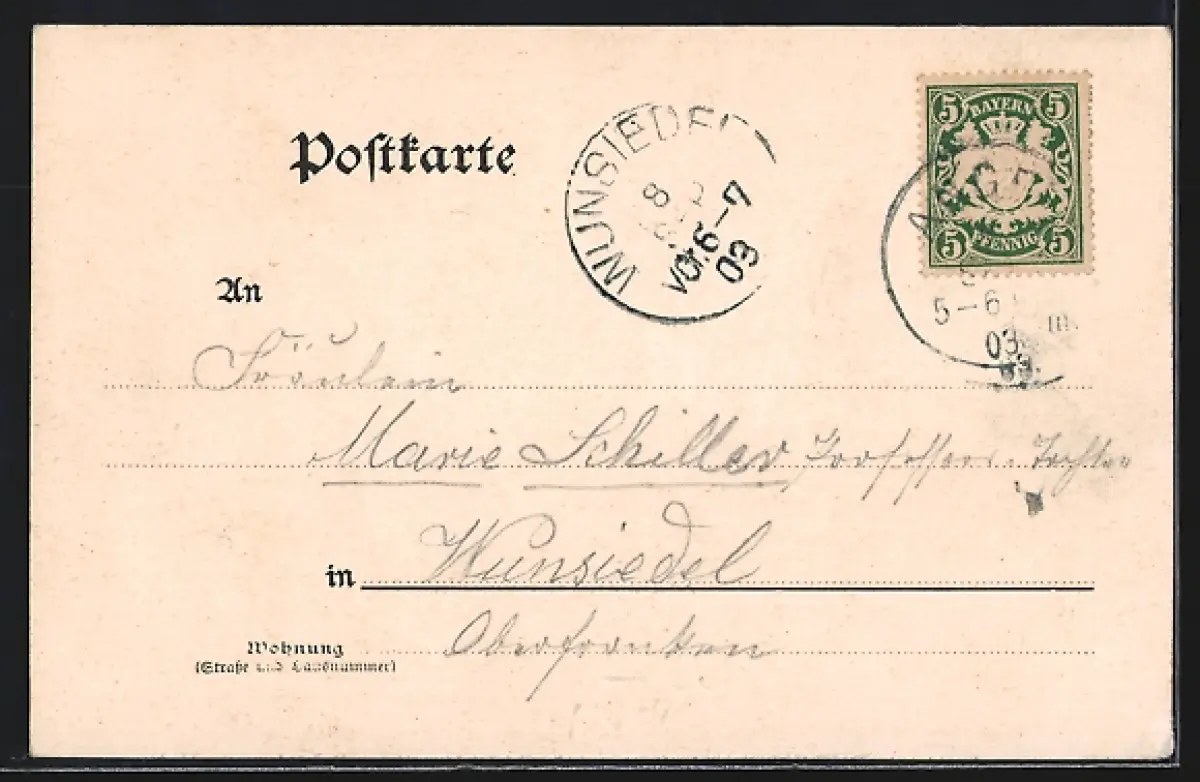 Postkarte
WUNSIEDEL
8
Vor.6-7
03
5 BAYERN 5
5 PFENNIG 5
5-6
03
An
Fräulein
Marie Schiller Professors-Tochter
Wunsiedel
in
Oberfranken
Wohnung
(Straße und Hausnummer)